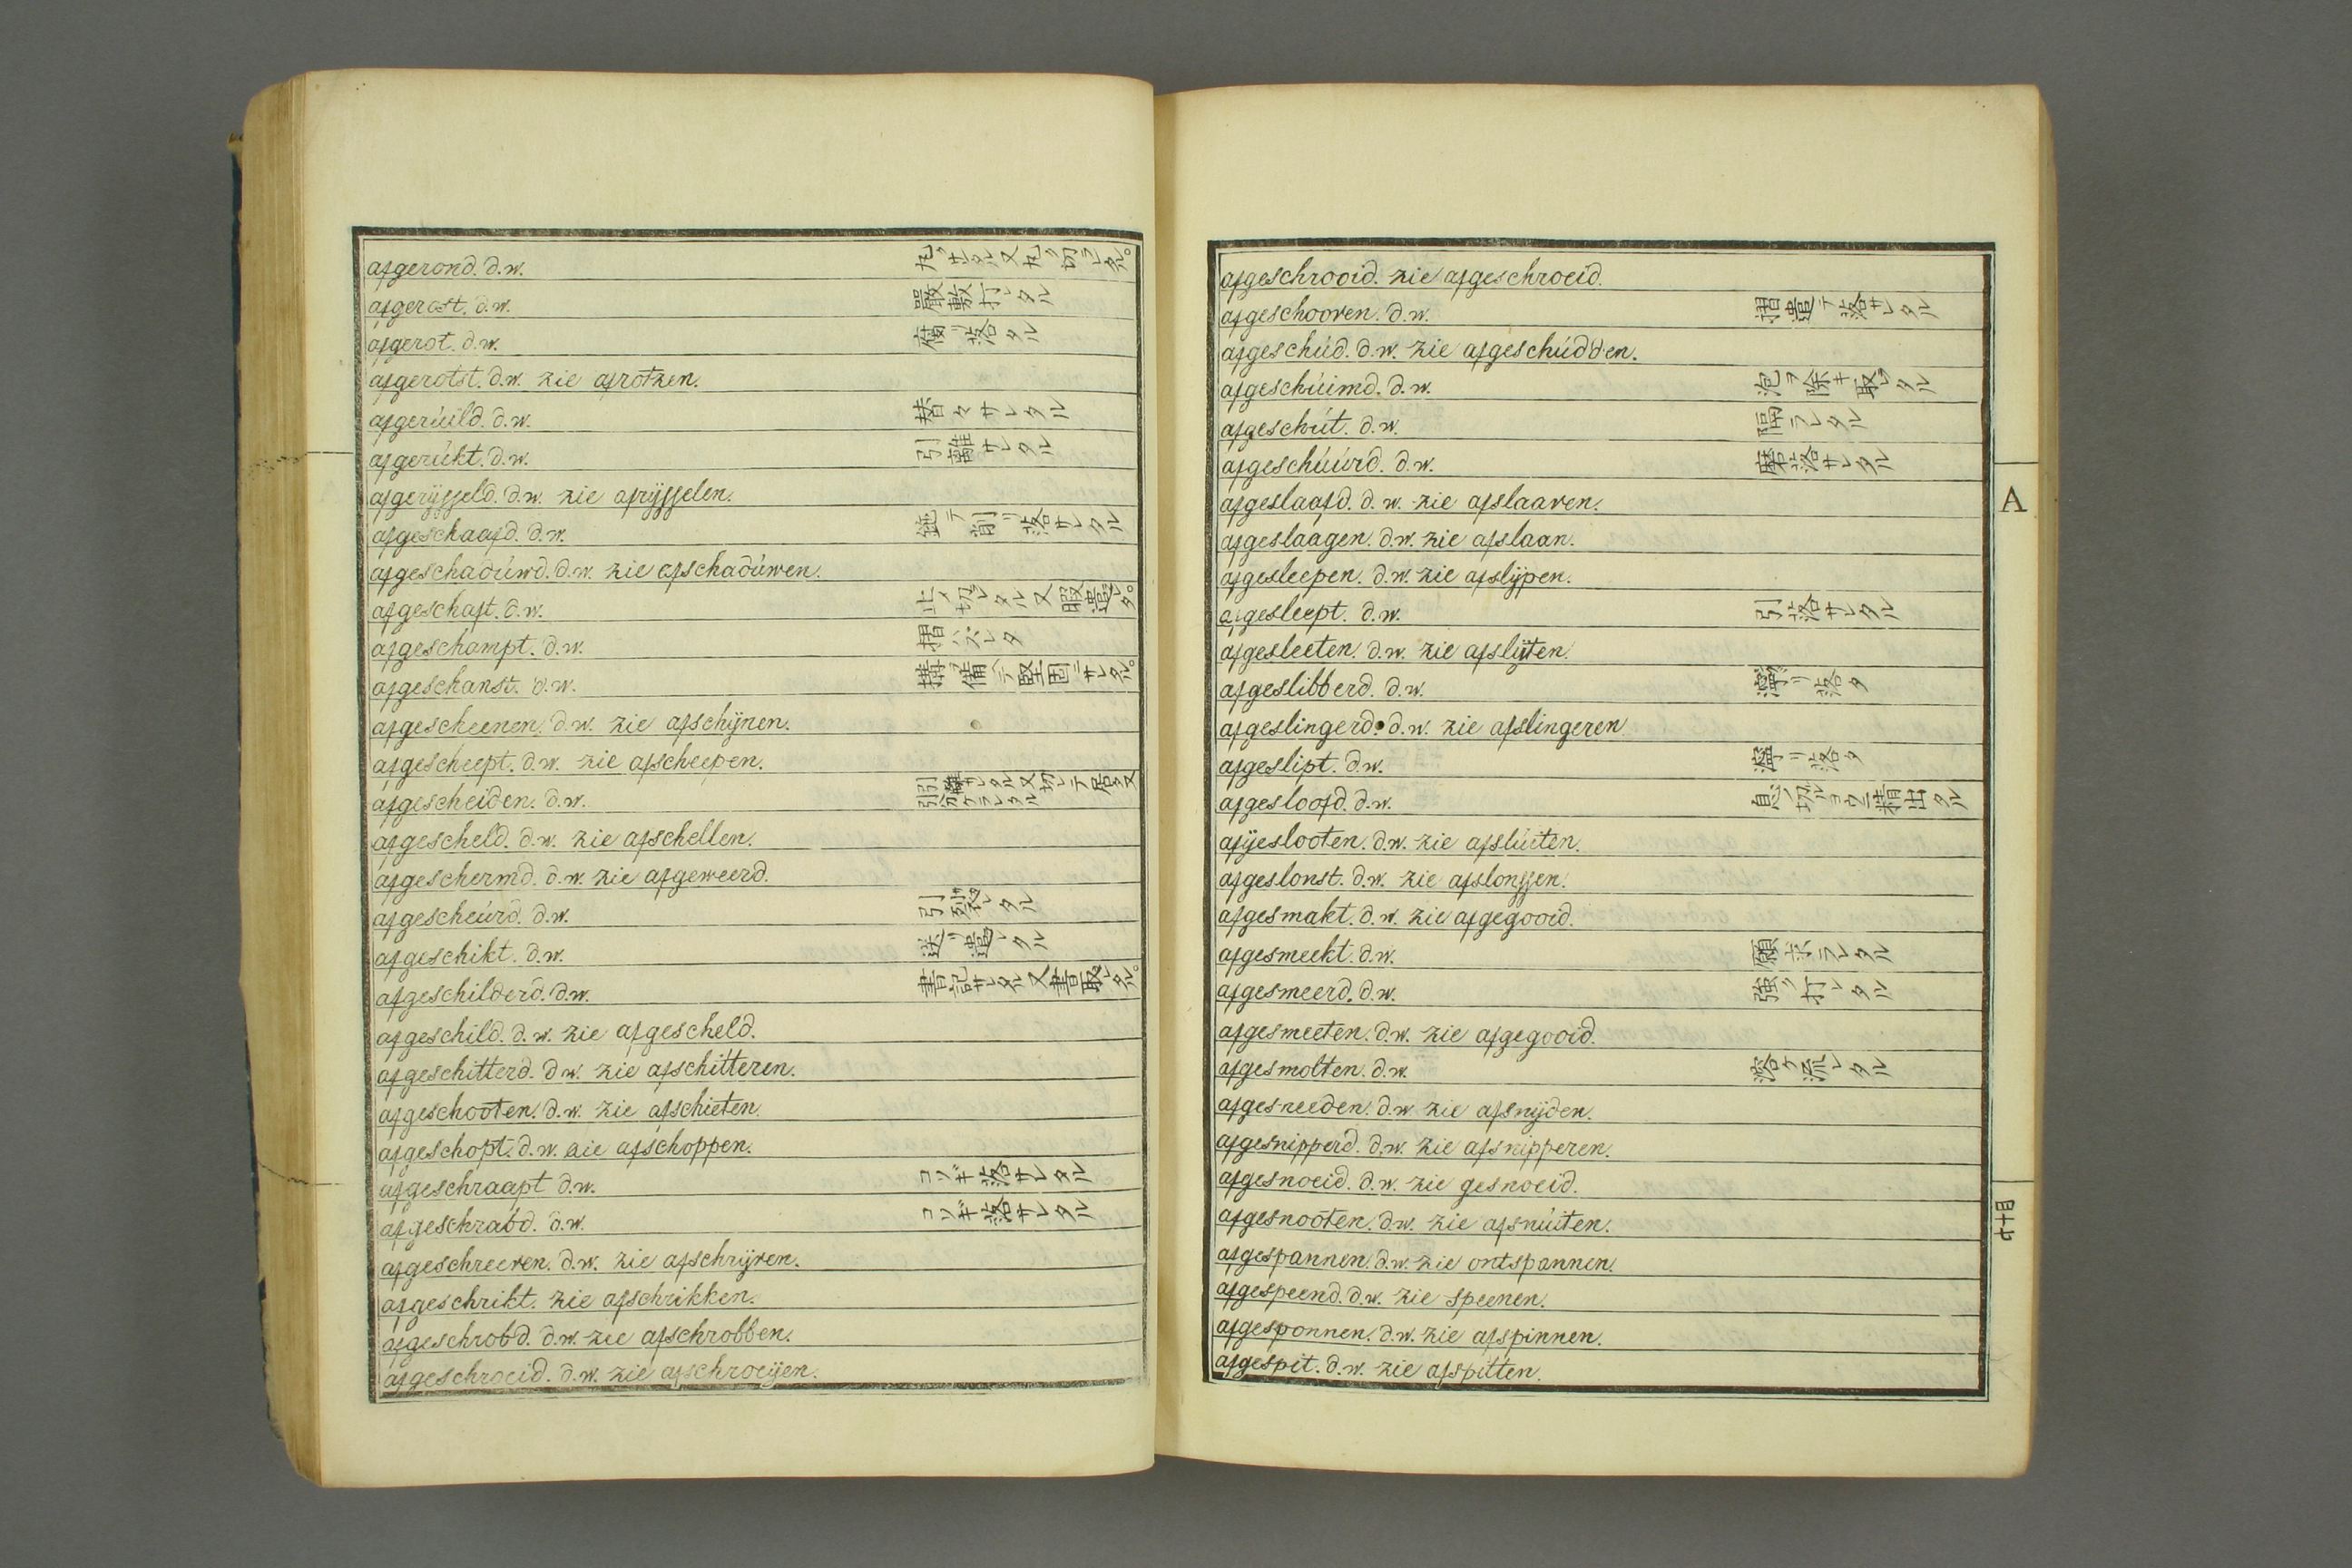 afgerond. d.w. 丸クサレタル又丸ク切ラレタル。
afgerost. d.w. 嚴敷打レタル
afgerot. d.w. 腐リ落タル
afgerotst. d.w. zie afrotzen.
afgerúild. d.w. 替々サレタル
afgerúkt. d.w. 引離サレタル
afgerÿsseld. d.w. zie afrÿsselen.
afgeschaafd. d.w. 鉋テ削リ落サレタル
afgeschadúwd. d.w. zie afschadúwen.
afgeschaft. d.w. 止メ切レタル又暇遣レタ。
afgeschampt. d.w. 摺ハズレタ
afgeschanst. d.w. 搆ヘ備ヘテ堅固ニサレタル。
afgescheenen. d.w. zie afschÿnen.
afgescheept. d.w. zie afscheepen.
afgescheiden. d.w. 引離サレタル又切レテ居タ又
引分ケラレタル
afgescheld. d.w. zie afschellen.
afgeschermd. d.w. zie afgeweerd.
afgescheúrd. d.w. 引裂レタル
afgeschikt. d.w. 送リ遣レタル
afgeschilderd. d.w. 書記サレタル又書取レタル。
afgeschild. d.w. zie afgescheld.
afgeschitterd. d.w. zie afschitteren.
afgeschooten. d.w. zie afschieten.
afgeschopt. d.w. zie afschoppen.
afgeschraapt d.w. コソギ落サレタル
afgeschrabd. d.w. コソギ落サレタル
afgeschreeven. d.w. zie afschrÿven.
afgeschrikt. zie afschrikken.
afgeschrobd. d.w. zie afschrobben.
afgeschroeid. d.w. zie afschroeijen.
afgeschrooid. zie afgeschroeid.
afgeschooven. d.w. 摺遣テ落サレタル
afgeschúd. d.w. zie afgeschúdden.
afgeschúimd. d.w. 泡ヲ除キ取レタル
afgeschút. d.w. 隔ラレタル
afgeschúúrd. d.w. 磨落サレタル
afgeslaafd. d.w. zie afslaaven.
afgeslaagen. d.w. zie afslaan.
afgesleepen. d.w. zie afslÿpen.
afgesleept. d.w. 引落サレタル
afgesleeten. d.w. zie afslÿten.
afgeslibberd. d.w. リ落タ
afgeslingerd. d.w. zie afslingeren
afgeslipt. d.w. リ落タ
afgesloofd. d.w. 息ノ切ルヨウニ精出タル
afgeslooten. d.w. zie afslúiten.
afgeslonst. d.w. zie afslonssen.
afgesmakt. d.w. zie afgegooid.
afgesmeekt. d.w. 願求ラレタル
afgesmeerd. d.w. 強ク打レタル
afgesmeeten. d.w. zie afgegooid.
afgesmolten. d.w. 溶ケ流レタル
afgesneeden. d.w. zie afsnÿden.
afgesnipperd. d.w. zie afsnipperen.
afgesnoeid. d.w. zie gesnoeid.
afgesnooten. d.w. zie afsnúiten.
afgespannen. d.w. zie ontspannen.
afgespeend. d.w. zie speenen.
afgesponnen. d.w. zie afspinnen.
afgespit. d.w. zie afspitten.
A